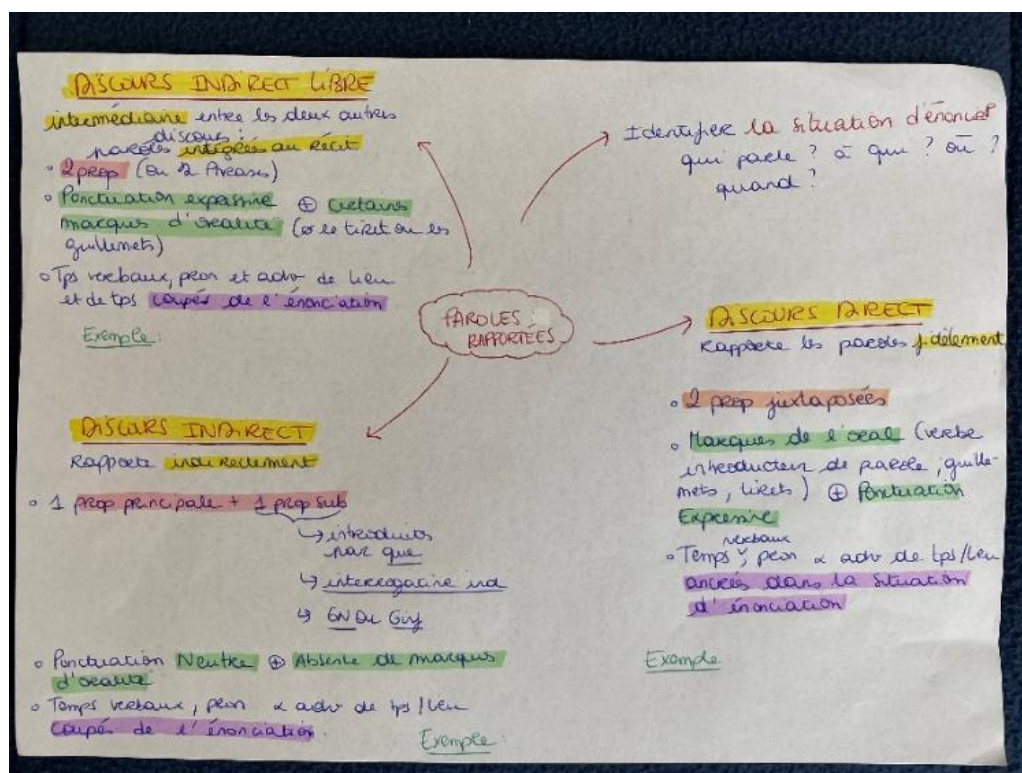 DISCOURS INDIRECT LIBRE
intermédiaire entre les deux autres
discours :
paroles intégrées au récit
• 2 prop (ou 2 Phrases)
• Ponctuation expressive ⊕ certains
marques d'oralité (ø le tiret ou les
guillemets)
• Tps verbaux, pron et adv de lieu
et de tps coupés de l'énonciation
Exemple :
Identifier la situation d'énonciat°
qui parle ? à qui ? où ?
quand ?
PAROLES
RAPPORTÉES
DISCOURS DIRECT
Rapporte les paroles fidèlement
• 2 prop juxtaposées
• Marques de l'oral (verbe
introducteur de parole, guille-
mets, tirets) ⊕ Ponctuation
Expressive
verbaux
• Temps, pron & adv de tps/lieu
ancrés dans la situation
d'énonciation
Exemple
DISCOURS INDIRECT
Rapporte indirectement
• 1 prop principale + 1 prop sub
↳ introduite
par que
↳ interrogative ind
↳ GN ou Ginf
• Ponctuation Neutre ⊕ Absence de marques
d'oralité
• Temps verbaux, pron & adv de tps/lieu
coupés de l'énonciation.
Exemple :